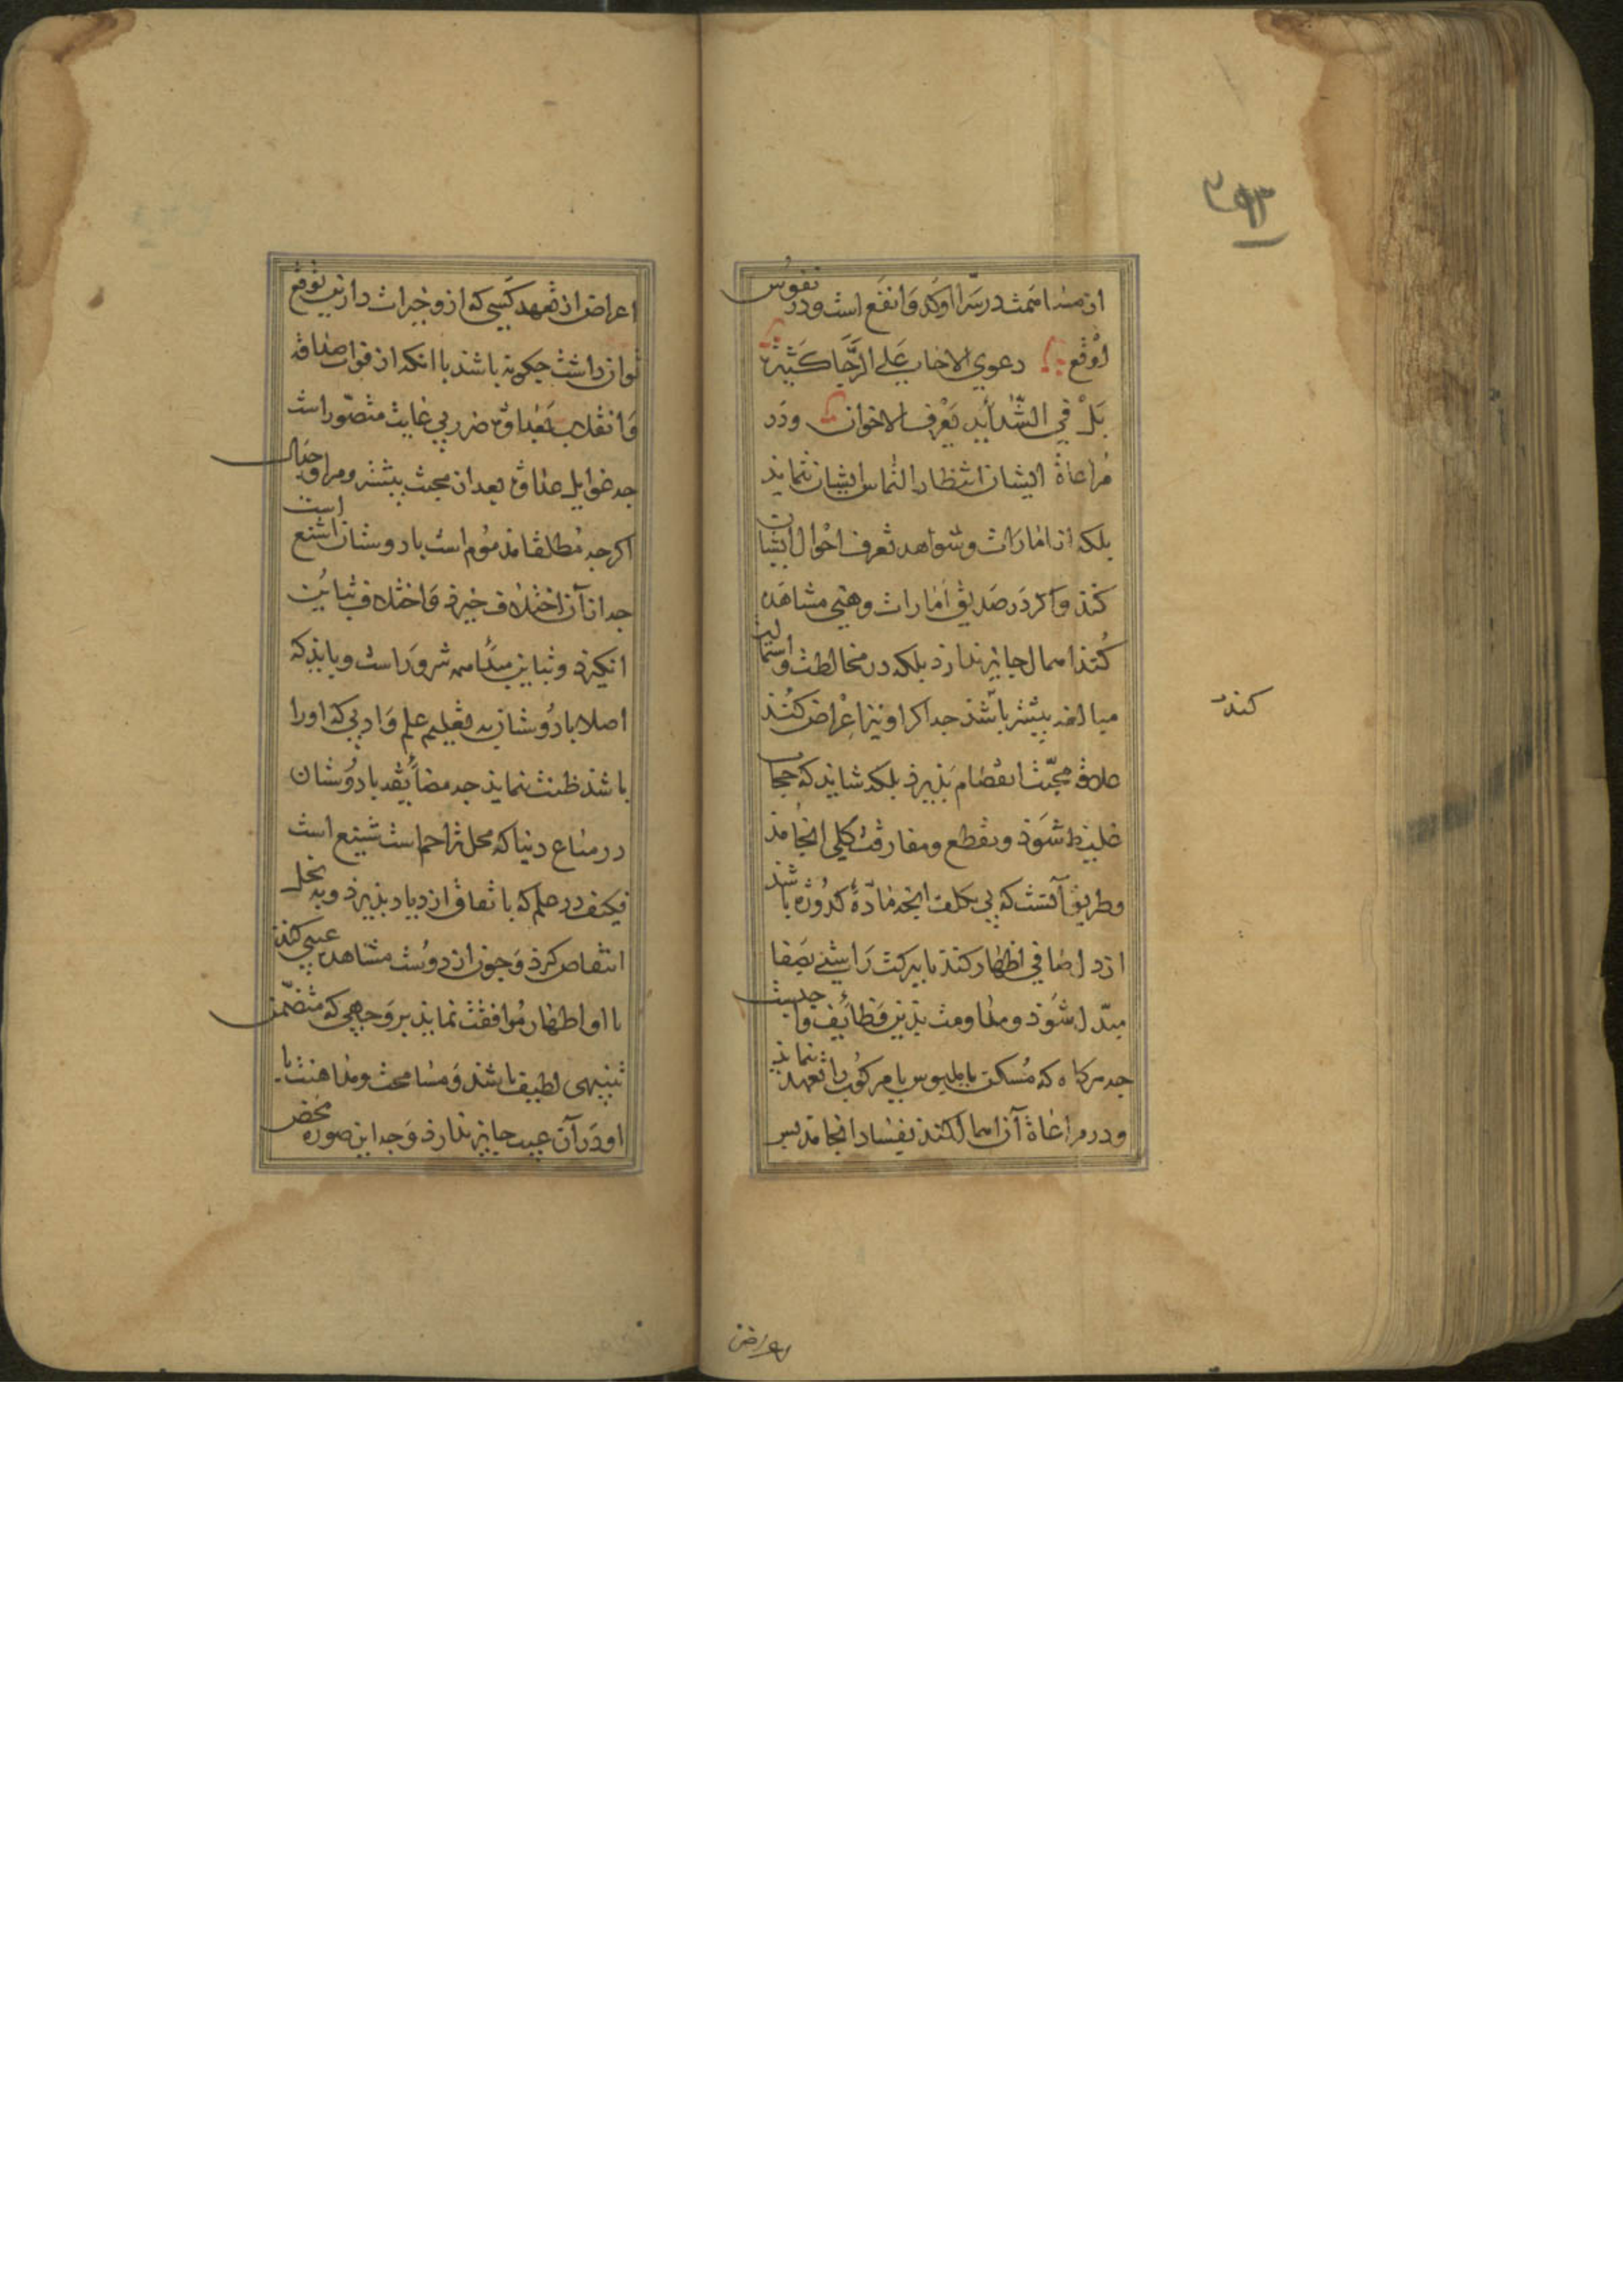 ۲۹۳
از مساهمت در سرّا اوکد و انفع است و در نفوس
اوقع دعوی الاخاء علی الرخا کثیرة
بل فی الشدائد یعرف الاخوان و در
مراعاة ایشان انتظار التماس ایشان ننماید
بلکه از امارات و شواهد تعرف احوال ایشان
کند و اگر در صدیق امارات وهنی مشاهده
کند اهمال جایز ندارد بلکه در مخالطت و استمالت
مبالغه بیشتر باشد چه اگر او نیز اعراض کند
کند
علاقه محبت انفصام پذیرد بلکه شاید که حجاب
غلیظ شود و بقطع و مفارقت کلی انجامد
و طریق آنست که بی تکلف انچه مادّه کدورة باشد
از دل صافی اظهار کند تا ببرکت راستی بصفا
مبدّل شود و مداومت بدین وظایف واجبست
چه هرگاه که مسکن یا ملبوس یا مرکوب را تعهد ننماید
و در مراعاة آن اهمال کند بفساد انجامد پس
اعراض
اعراض از تعهد کسی که ازو خیرات دارین توقع
توان داشت چکونه باشد با انکه از فوات صداقه
و انقلاب بعداوة ضرر بی غایت متصوّر است
چه غوایل عداوة بعد از محبت بیشتر و مراوجدال
اکرچه مطلقا مذموم است با دوستان اشنع است
چه از آن اختلاف خیزد و اختلاف تباین
انکیزد و تباین مبدأ همه شرور است و باید که
اصلا با دوستان به تعلیم علم و ادبی که او را
باشد ظنت ننماید چه مضایقه با دوستان
در متاع دنیا که محل تزاحم است شنیع است
فکیف در علم که باتفاق ازدیاد پذیرد و به بخل
انتقاص کرد و چون از دوست مشاهده عیبی کند
با او اظهار موافقت نماید بر وجهی که متضمن
تنبیهی لطیف باشد و مسامحت و مداهنت با
او در آن عیب جایز ندارد و چه این صورة محض